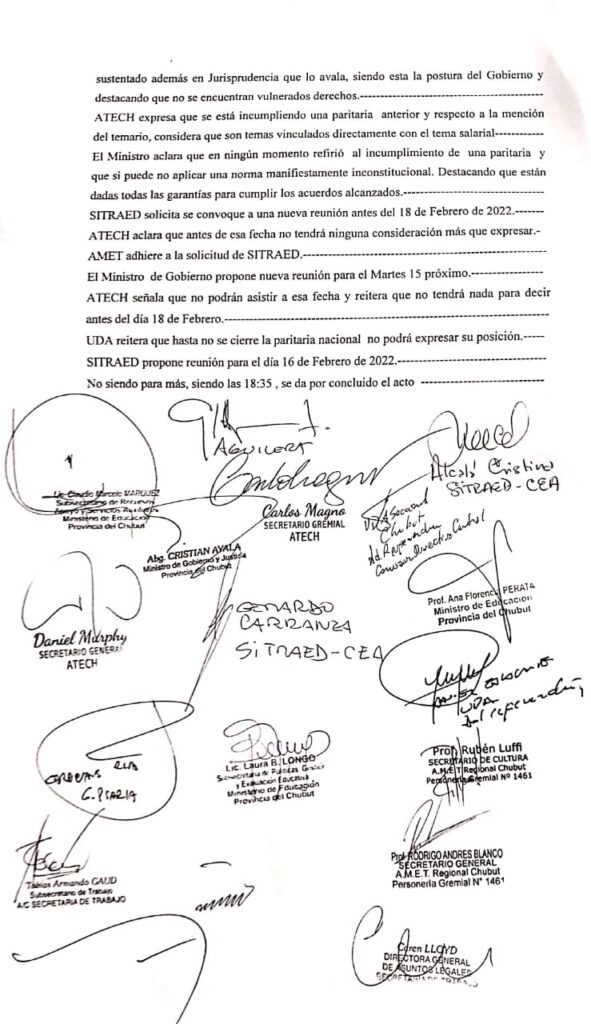 sustentado además en Jurisprudencia que lo avala, siendo esta la postura del Gobierno y
destacando que no se encuentran vulnerados derechos.----------------------------------------
ATECH expresa que se está incumpliendo una paritaria anterior y respecto a la mención
del temario, considera que son temas vinculados directamente con el tema salarial------------
El Ministro aclara que en ningún momento refirió al incumplimiento de una paritaria y
que si puede no aplicar una norma manifiestamente inconstitucional. Destacando que están
dadas todas las garantías para cumplir los acuerdos alcanzados.-------------------------------
SITRAED solicita se convoque a una nueva reunión antes del 18 de Febrero de 2022.-------
ATECH aclara que antes de esa fecha no tendrá ninguna consideración más que expresar.-
AMET adhiere a la solicitud de SITRAED.-----------------------------------------------------
El Ministro de Gobierno propone nueva reunión para el Martes 15 próximo.----------------
ATECH señala que no podrán asistir a esa fecha y reitera que no tendrá nada para decir
antes del día 18 de Febrero.--------------------------------------------------------------------
UDA reitera que hasta no se cierre la paritaria nacional no podrá expresar su posición.-----
SITRAED propone reunión para el día 16 de Febrero de 2022.---------------------------------
No siendo para más, siendo las 18:35 , se da por concluido el acto ---------------------------
AGUILERA
Alcalá Cristina
SITRAED-CEA
Lic. Claudio Marcelo MARQUEZ
Subsecretario de Recursos
Apoyo y Servicios Auxiliares
Ministerio de Educación
Provincia del Chubut
Carlos Magno
SECRETARIO GREMIAL
ATECH
UDA
Chubut
Abg. CRISTIAN AYALA
Ministro de Gobierno y Justicia
Provincia del Chubut
Prof. Ana Florencia PERATA
Ministro de Educación
Provincia del Chubut
GERARDO
CARRANZA
SITRAED-CEA
Daniel Murphy
SECRETARIO GENERAL
ATECH
UDA
Lic. Laura B. LONGO
Subsecretaria de Políticas, Gestión
y Evaluación Educativa
Ministerio de Educación
Provincia del Chubut
Prof. Rubén Luffi
SECRETARIO DE CULTURA
A.M.E.T Regional Chubut
Personería Gremial N° 1461
Prof. RODRIGO ANDRES BLANCO
SECRETARIO GENERAL
A.M.E.T. Regional Chubut
Personería Gremial N° 1461
Tobias Armando GAUD
Subsecretario de Trabajo
A/C SECRETARIA DE TRABAJO
Caren LLOYD
DIRECTORA GENERAL
DE ASUNTOS LEGALES
SECRETARIA DE TRABAJO